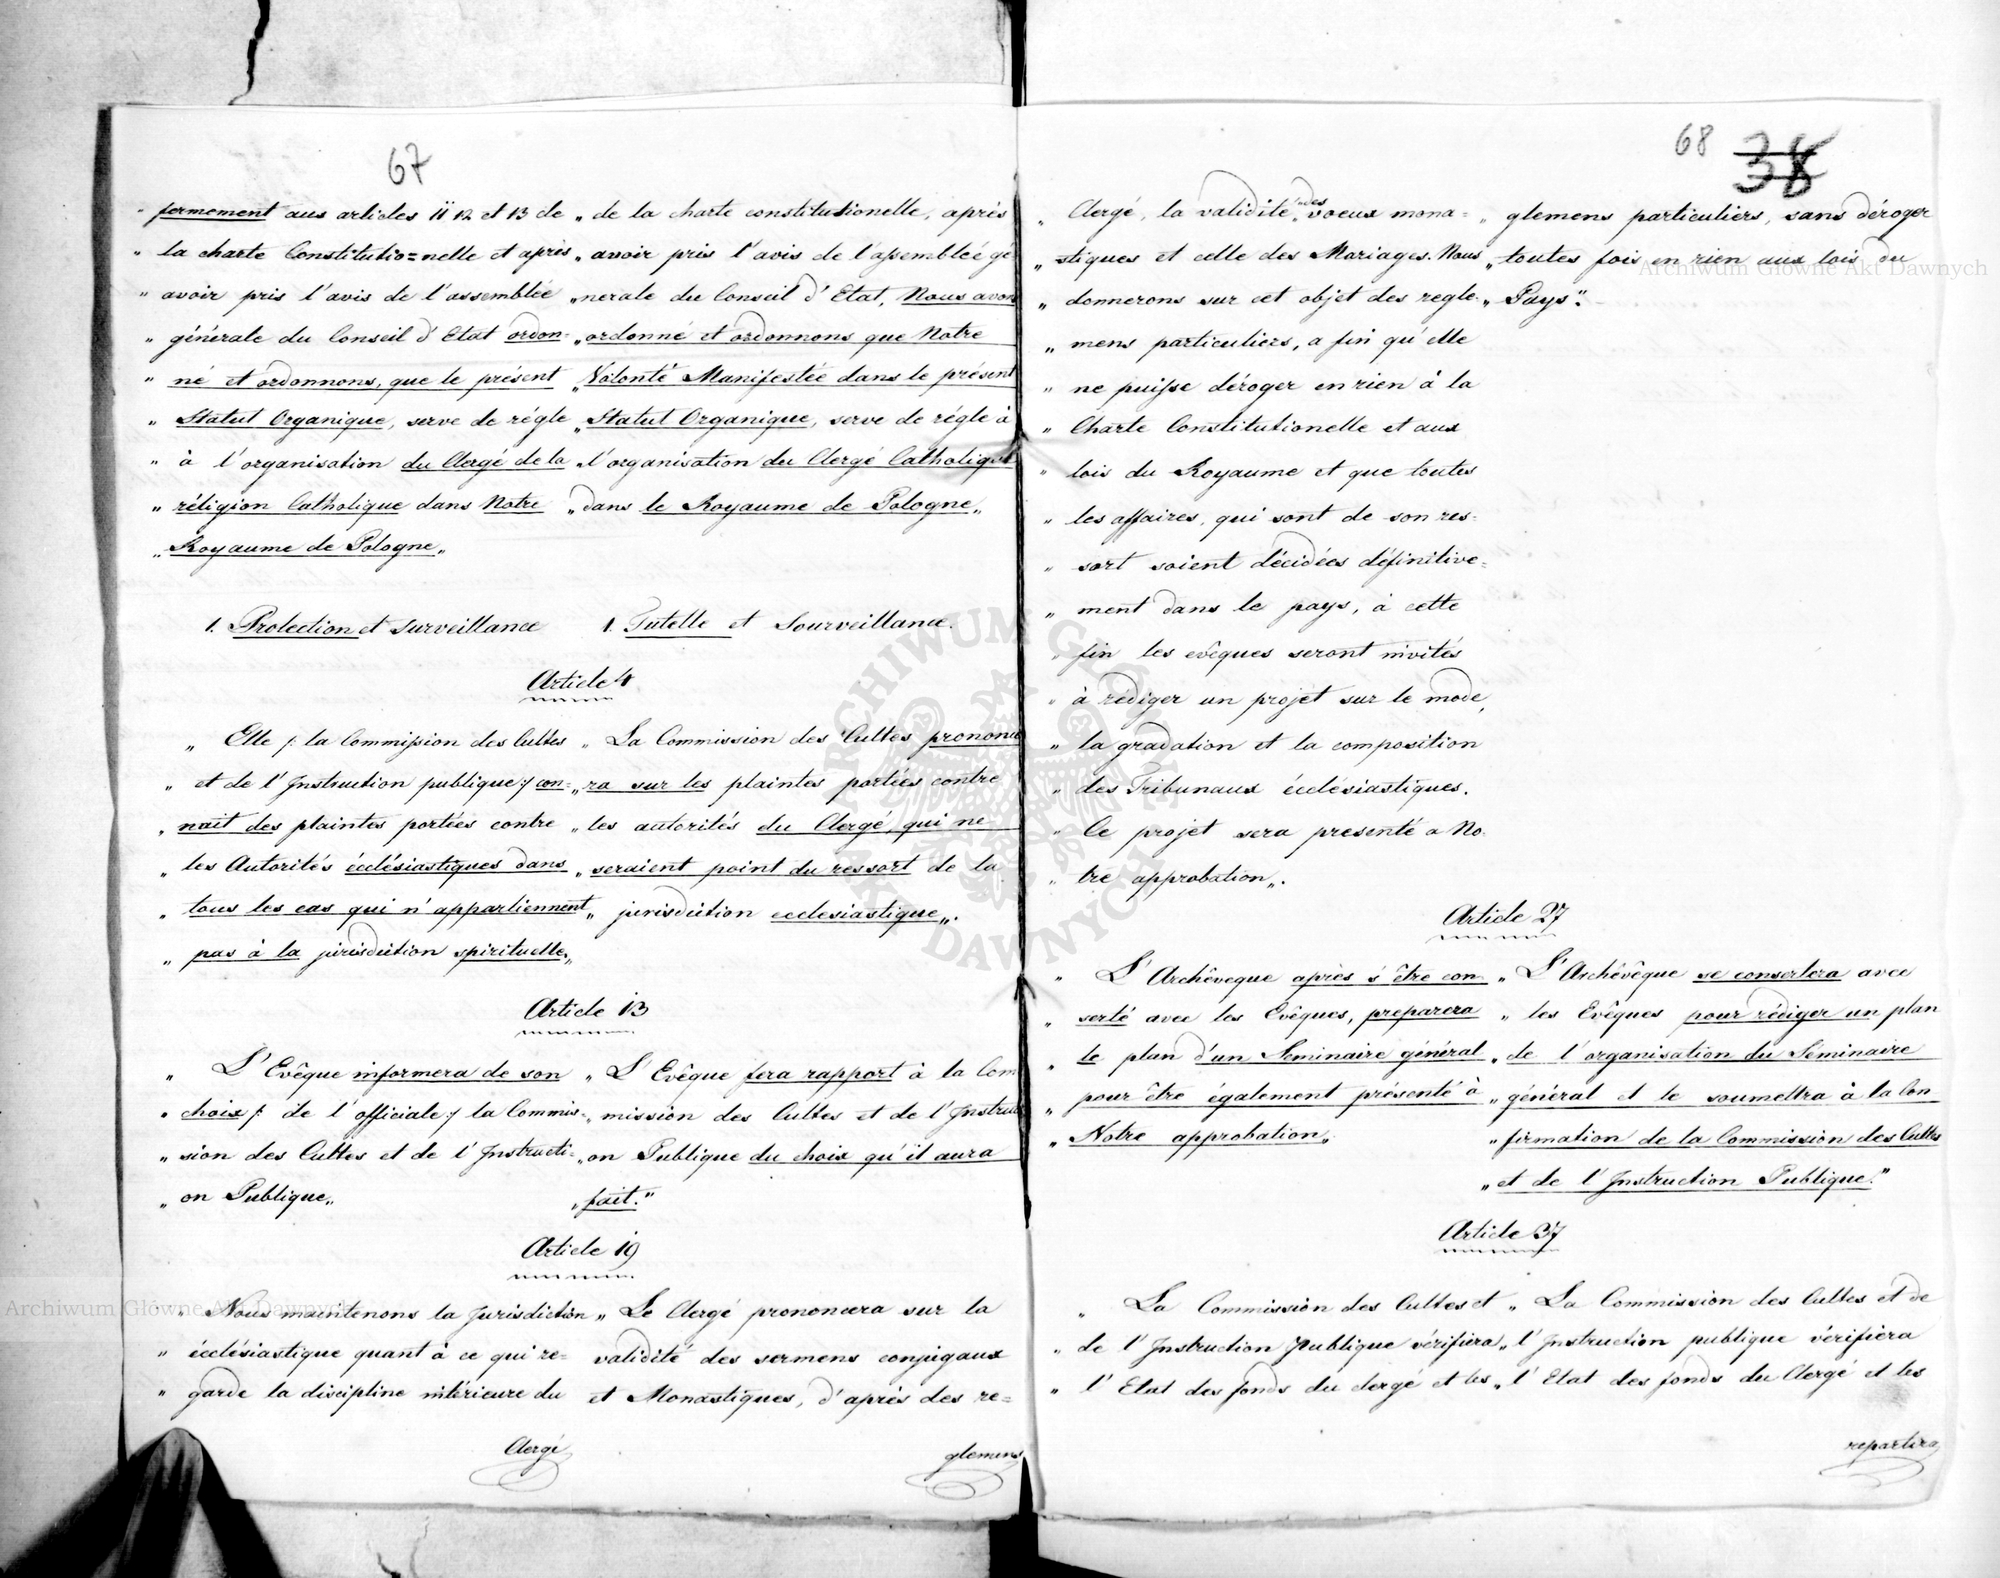 67
„ fermement aux articles 11 12 et 13 de
„ la charte Constitutio=nelle et après
„ avoir pris l'avis de l'assemblée
„ générale du Conseil d'Etat ordon-
„ né et ordonnons, que le présent
„ Statut Organique, serve de régle
„ à l'organisation du Clergé de la
„ réligion Catholique dans Notre
„ Royaume de Pologne„
„ de la charte constitutionelle, après
„ avoir pris l'avis de l'assembleé gé
„ nerale du Conseil d'Etat, Nous avons
„ ordonné et ordonnons que Notre
„ Volonté Manifestée dans le présent
„ Statut Organique, serve de régle à
„ l'organisation du Clergé Catholique
„ dans le Royaume de Pologne„
1. Protection et surveillance
1. Tutelle et Sourveillance.
Article 4
„ Elle /: la Commission des Cultes
„ et de l'Instruction publique :/ con-
„ nait des plaintes portées contre
„ les Autorités écclésiastiques dans
„ tous les cas qui n'appartiennent
„ pas à la jurisdiction spirituelle„
„ La Commission des Cultes prononce
„ ra sur les plaintes portées contre
„ les autorités du Clergé, qui ne
„ seraient point du ressort de la
„ jurisdiction ecclesiastique„.
Article 13
„ L'Evêque informera de son
„ choix /: de l'officiale :/ la Commis-
„ sion des Cultes et de l'Instructi-
„ on Publique„
„ L'Evêque fera rapport à la Com
„ mission des Cultes et de l'Instructi
„ on Publique du choix qu'il aura
„ fait."
Article 19
„ Nous maintenons la Jurisdiction
„ écclésiastique quant à ce qui re=
„ garde la discipline intérieure du
Clergé
„ Le Clergé prononcera sur la
validité des sermens conjugaux
et Monastiques, d'après des re=
glemens
68 38
„ Clergé, la validité des voeux mona=
„ stiques et celle des Mariages. Nous
„ donnerons sur cet objet des regle-
„ mens particuliers, a fin qu'elle
„ ne puisse déroger en rien à la
„ Charte Constitutionelle et aux
„ lois du Royaume et que toutes
„ les affaires, qui sont de son res-
„ sort soient décidées définitive=
„ ment dans le pays, à cette
„ fin les evêques seront invités
„ à rédiger un projet sur le mode,
„ la gradation et la composition
„ des Tribunaux écclésiastiques.
„ Ce projet sera presenté a No-
„ tre approbation„.
„ glemens particuliers, sans déroger
„ toutes fois en rien aux lois du
„ Pays".
Article 27
„ L'Archêveque après s'être con-
„ serté avec les Evêques, preparera
„ le plan d'un Seminaire général
„ pour être également présenté à
„ Notre approbation„
„ L'Archévêque se consertera avec
„ les Evêques pour rédiger un plan
„ de l'organisation du Séminaire
„ général et le soumettra à la Con
„ firmation de la Commission des Cultes
„ et de l'Instruction Publique."
Article 37
„ La Commission des Cultes et
„ de l'Instruction Publique vérifiera
„ l'Etat des fonds du clergé et les
„ La Commission des Cultes et de
„ l'Instruction publique vérifiera
„ l'Etat des fonds du Clergé et les
repartira
Archiwum Główne Akt Dawnych
Archiwum Główne Akt Dawnych
ARCHIWUM GŁÓWNE AKT DAWNYCH